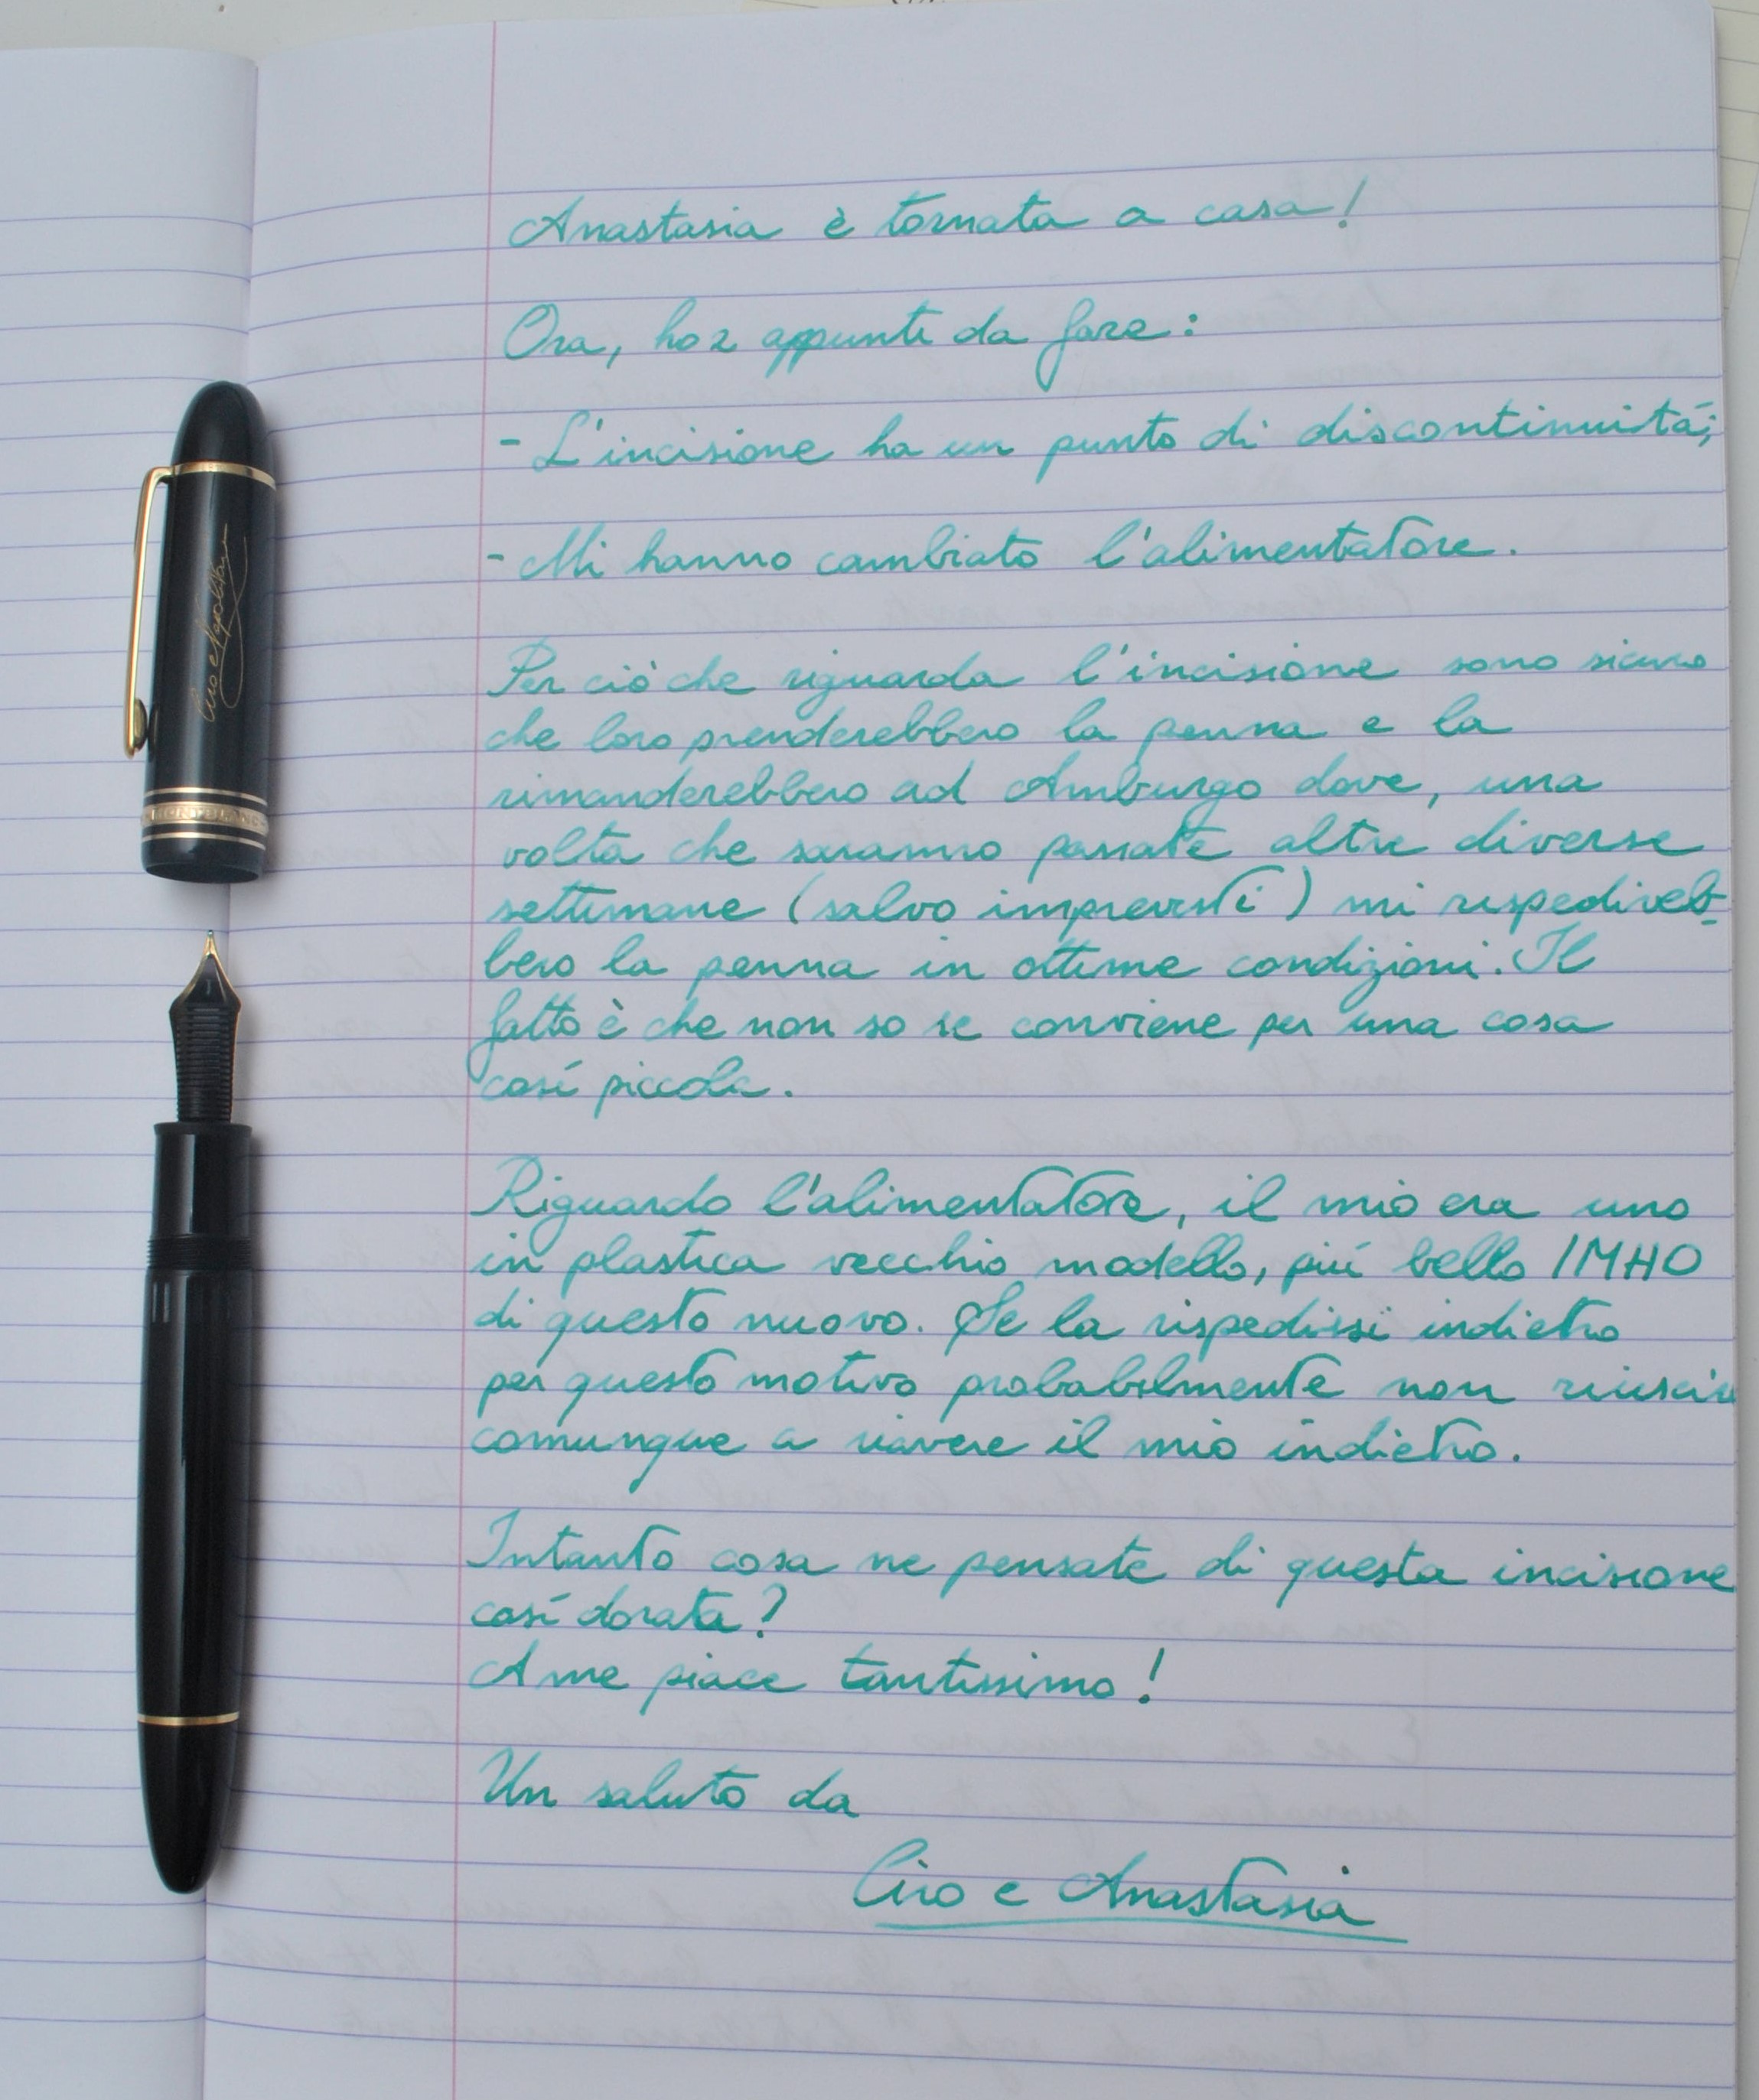 Anastasia è tornata a casa!
Ora, ho 2 appunti da fare:
- L'incisione ha un punto di discontinuitá;
- Mi hanno cambiato l'alimentatore.
Per ciò che riguarda l'incisione sono sicuro
che loro prenderebbero la penna e la
rimanderebbero ad Amburgo dove, una
volta che saranno passate altre diverse
settimane (salvo imprevisti) mi rispedireb-
bero la penna in ottime condizioni. Il
fatto è che non so se conviene per una cosa
cosí piccola.
Riguardo l'alimentatore, il mio era uno
in plastica vecchio modello, piú bello IMHO
di questo nuovo. Se la rispedissi indietro
per questo motivo probabilmente non
comunque a riavere il mio indietro.
Intanto cosa ne pensate di questa incisione
cosí dorata?
A me piace tantissimo!
Un saluto da
Ciro e Anastasia
Ciro e Napolitano
MONTBLANC